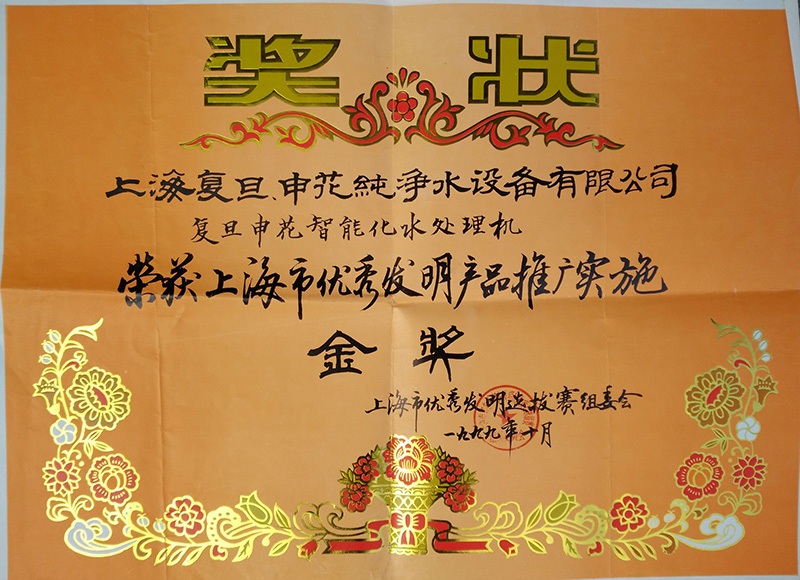 奖状
上海复旦、申花純净水设备有限公司
复旦申花智能化水处理机
荣获上海市优秀发明产品推广实施
金奖
上海市优秀发明选拔赛组委会
一九九九年十月